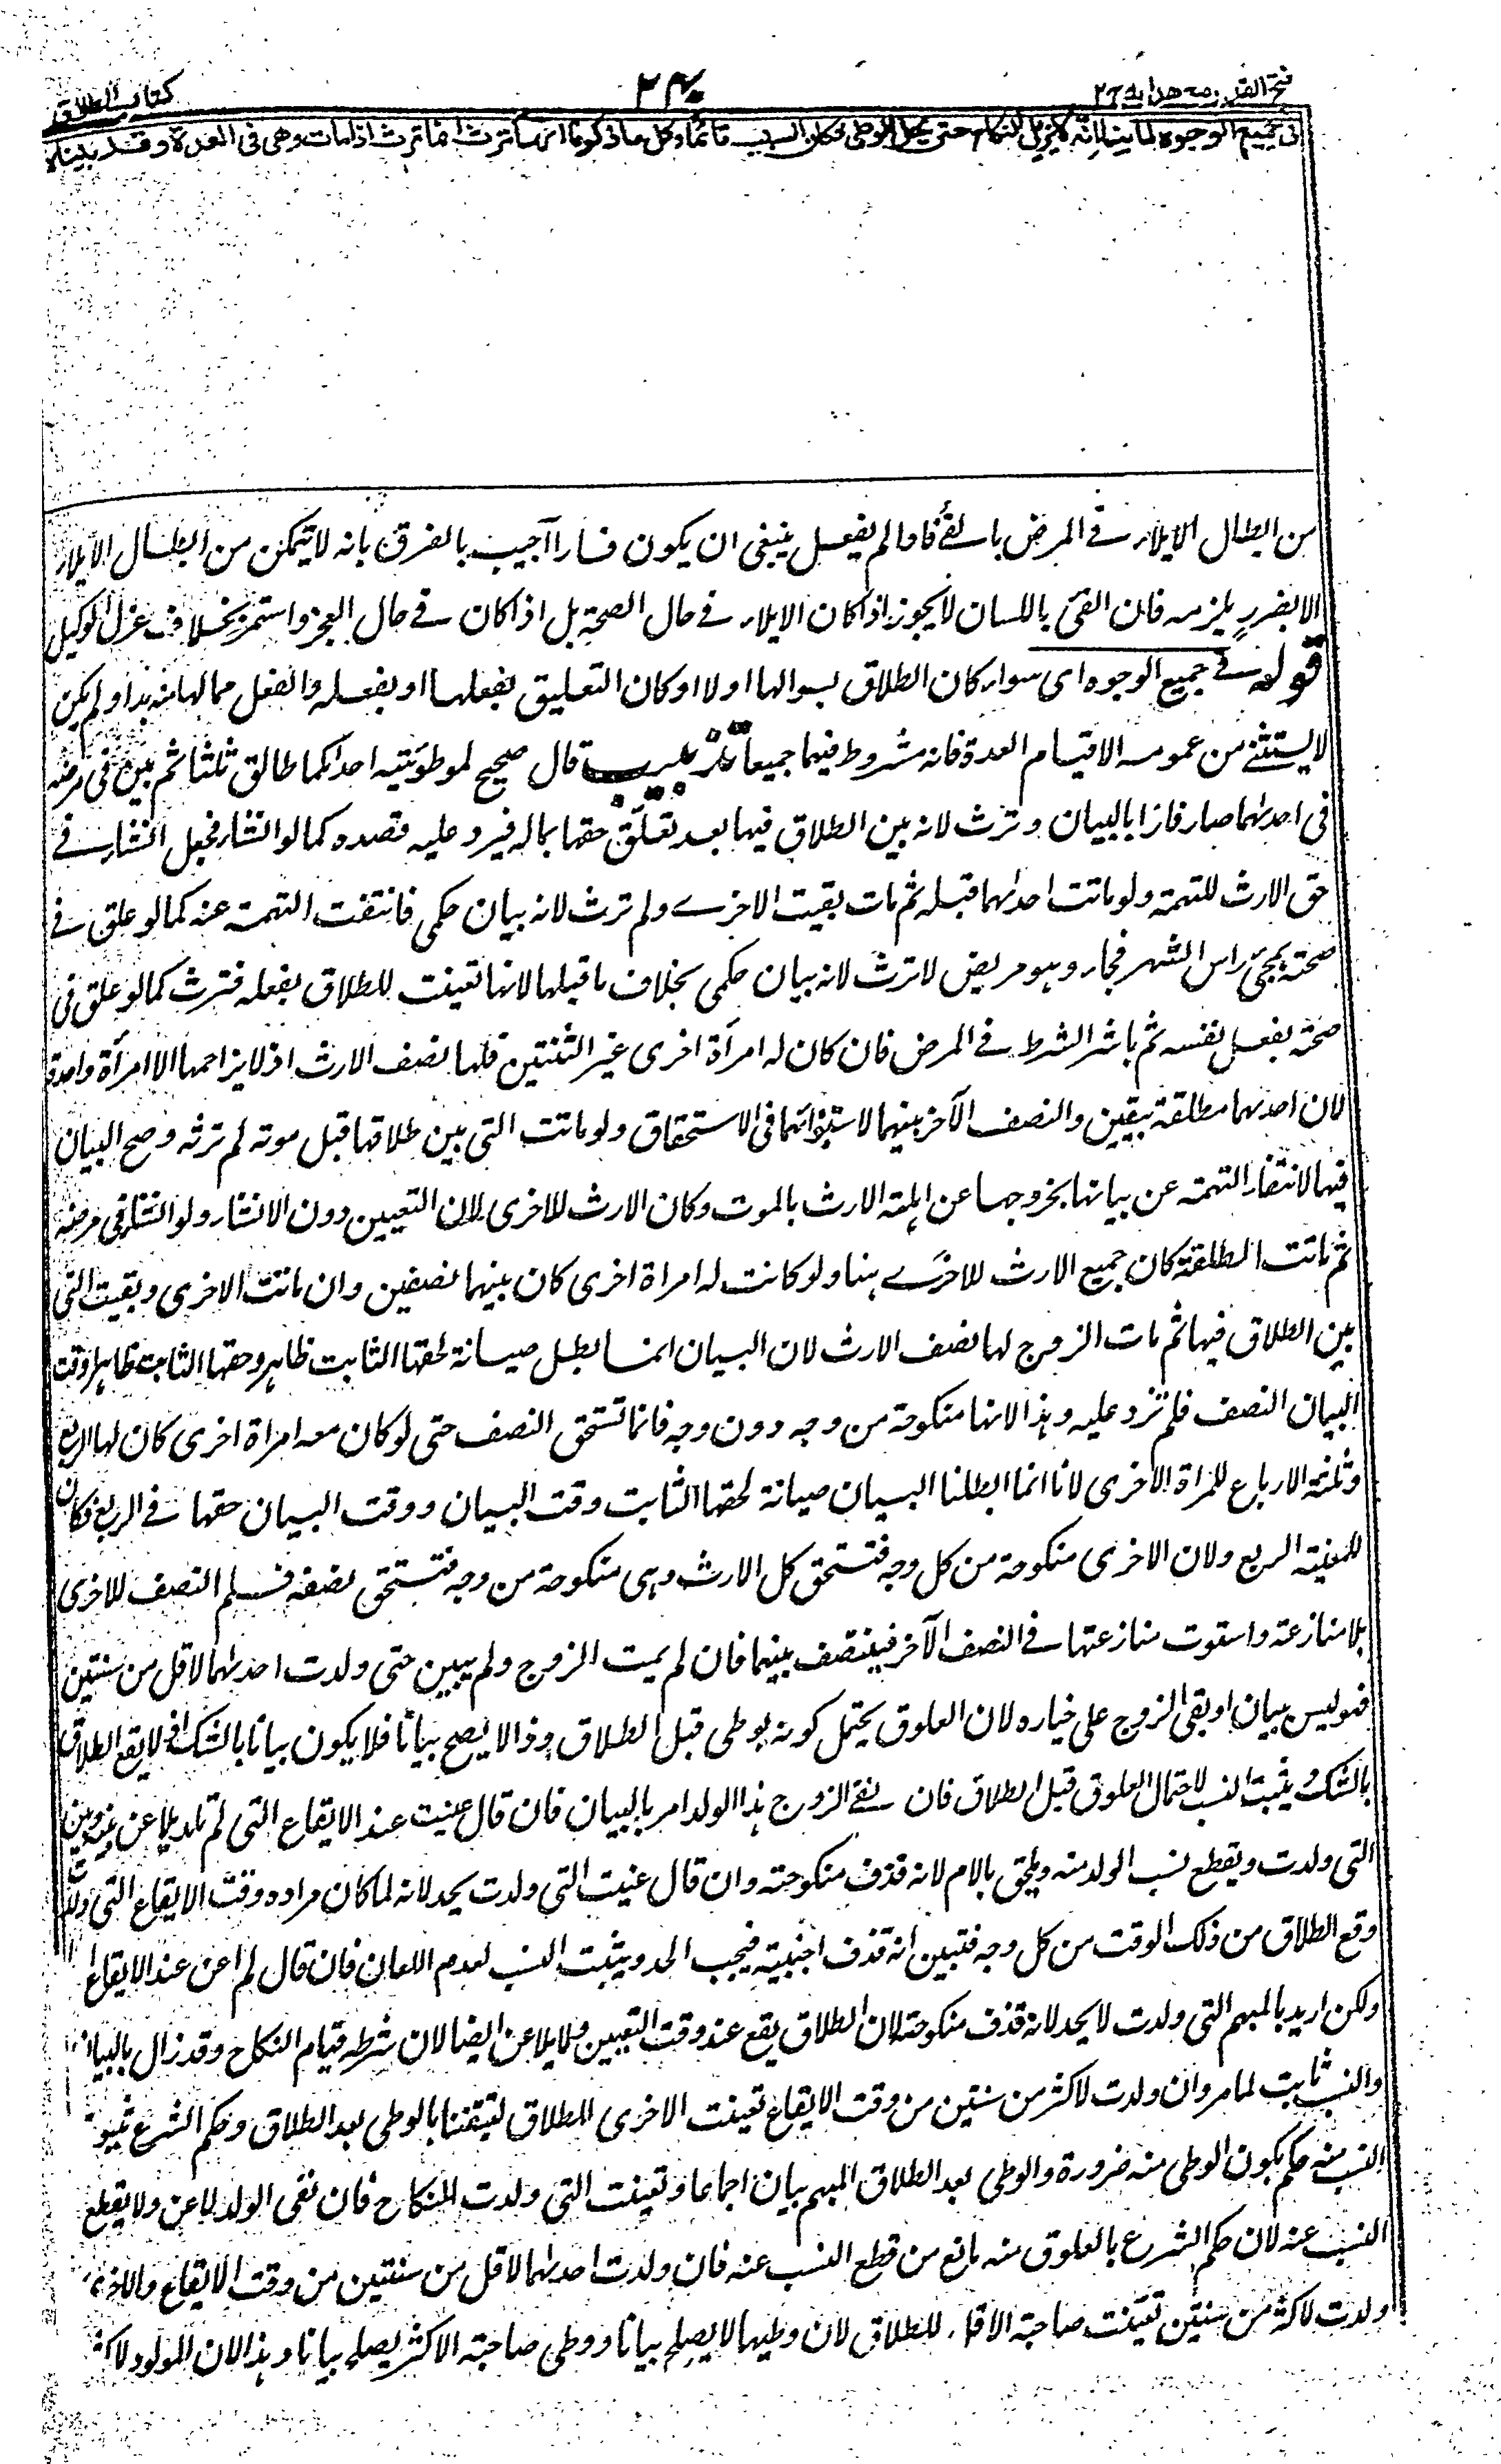 فتح القدير مع هدايه ج٢
٢٤٠
كتاب الطلاق
فى جميع الوجوه لما بينا انه لا يزيل النكاح حتى يحل الوطى فكان السبب قائما وكل ما ذكرنا انها ترث انما ترث اذا مات وهى فى العدة وقد بيناه
من ابطال الايلاء فى المرض بالفئ فاذا لم يفعل ينبغى ان يكون فارا اجيب بالفرق بانه لا يتمكن من ابطال الايلاء
الا بضرر يلزمه فان الفئ باللسان لا يجوز اذا كان الايلاء فى حال الصحة بل اذا كان فى حال العجز واستمر بخلاف عزل الوكيل
قوله فى جميع الوجوه اى سواء كان الطلاق بسوالها اولا او كان التعليق بفعلها او بفعله والفعل مما لها منه بد او لم يكن
لا يستثنے من عمومه الاقيام العدة فانه مشروط فيها جميعا تذنيب قال صحيح لموطوئتيه احداكما طالق ثلثا ثم بين فى مرضه
فى احدىهما صار فارا بالبيان وترث لانه بين الطلاق فيها بعد تعلق حقها بماله فيرد عليه قصده كما لو انشأ فجعل انشاء فے
حق الارث للتهمة ولو ماتت احدىهما قبله ثم مات بقيت الاخرے ولم ترث لانه بيان حكمى فانتفت التهمة عنه كما لو علق فے
صحته بمجئ راس الشهر فجاء وهو مريض لا ترث لانه بيان حكمى بخلاف ما قبلها لانها تعينت للطلاق بفعله فترث كما لو علق فى
صحته بفعل نفسه ثم باشر الشرط فے المرض فان كان له امرأة اخرى غير الثنتين فلها نصف الارث اذ لا يزاحمها الا امرأة واحدة
لان احدىهما مطلقة بيقين والنصف الآخر بينهما لاستوائهما فى الاستحقاق ولو ماتت التى بين طلاقها قبل موته لم ترثه وصح البيان
فيها لانتفاء التهمة عن بيانها بخروجها عن اهلية الارث بالموت وكان الارث للاخرى لان التعيين دون الانشاء ولو انشأ فى مرضه
ثم ماتت المطلقة كان جميع الارث للاخرے هنا ولو كانت له امراة اخرى كان بينهما نصفين وان ماتت الاخرى وبقيت التى
بين الطلاق فيها ثم مات الزوج لها نصف الارث لان البيان انما بطل صيانة لحقها الثابت ظاهرا وحقها الثابت ظاهرا وقت
البيان النصف فلم تزد عليه وهذا لانها منكوحة من وجه دون وجه فانما تستحق النصف حتى لو كان معه امراة اخرى كان لها الربع
وثلثة الارباع للمراة الاخرى لانا انما ابطلنا البيان صيانة لحقها الثابت وقت البيان ووقت البيان حقها فے الربع فكان
للمعينة الربع ولان الاخرى منكوحة من كل وجه فتستحق كل الارث وهى منكوحة من وجه فتستحق نصفه فسلم النصف للاخرى
بلا منازعة واستوت منازعتها فے النصف الآخر فينتصف بينهما فان لم يمت الزوج ولم يبين حتى ولدت احدىهما لاقل من سنتين
فهو ليس ببيان او بقى الزوج على خياره لان العلوق يحتمل كونه بوطى قبل الطلاق وذا لا يصح بيانا فلا يكون بيانا بالشك اذ لا يقع الطلاق
بالشك ويثبت النسب لاحتمال العلوق قبل الطلاق فان نفے الزوج هذا الولد امر بالبيان فان قال عنيت عند الايقاع التى لم تلد يلاعن بينه وبين
التى ولدت ويقطع نسب الولد منه ويلحق بالام لانه قذف منكوحته وان قال عنيت التى ولدت يحد لانه لما كان مراده وقت الايقاع التى ولدت
وقع الطلاق من ذلك الوقت من كل وجه فتبين انه قذف اجنبية فيجب الحد ويثبت النسب لعدم اللعان فان قال لم اعن عند الايقاع
ولكن اريد بالمبهم التى ولدت لا يحد لانه قذف منكوحته لان الطلاق يقع عند وقت التعيين ولا يلاعن ايضا لان شرطه قيام النكاح وقد زال بالبيان
والنسب ثابت لما مر وان ولدت لاكثر من سنتين من وقت الايقاع تعينت الاخرى للطلاق لتيقننا بالوطى بعد الطلاق وحكم الشرع ثبوت
النسب منه حكم بكون الوطى منه ضرورة والوطى بعد الطلاق المبهم بيان اجماعا وتعينت التى ولدت للنكاح فان نفى الولد لاعن ولا يقطع
النسب عنه لان حكم الشرع بالعلوق منه مانع من قطع النسب عنه فان ولدت احدىهما لاقل من سنتين من وقت الايقاع والاخرى
ولدت لاكثر من سنتين تعينت صاحبة الاقل للطلاق لان وطيها لا يصلح بيانا ووطى صاحبة الاكثر يصلح بيانا وهذا لان المولود لاكثر